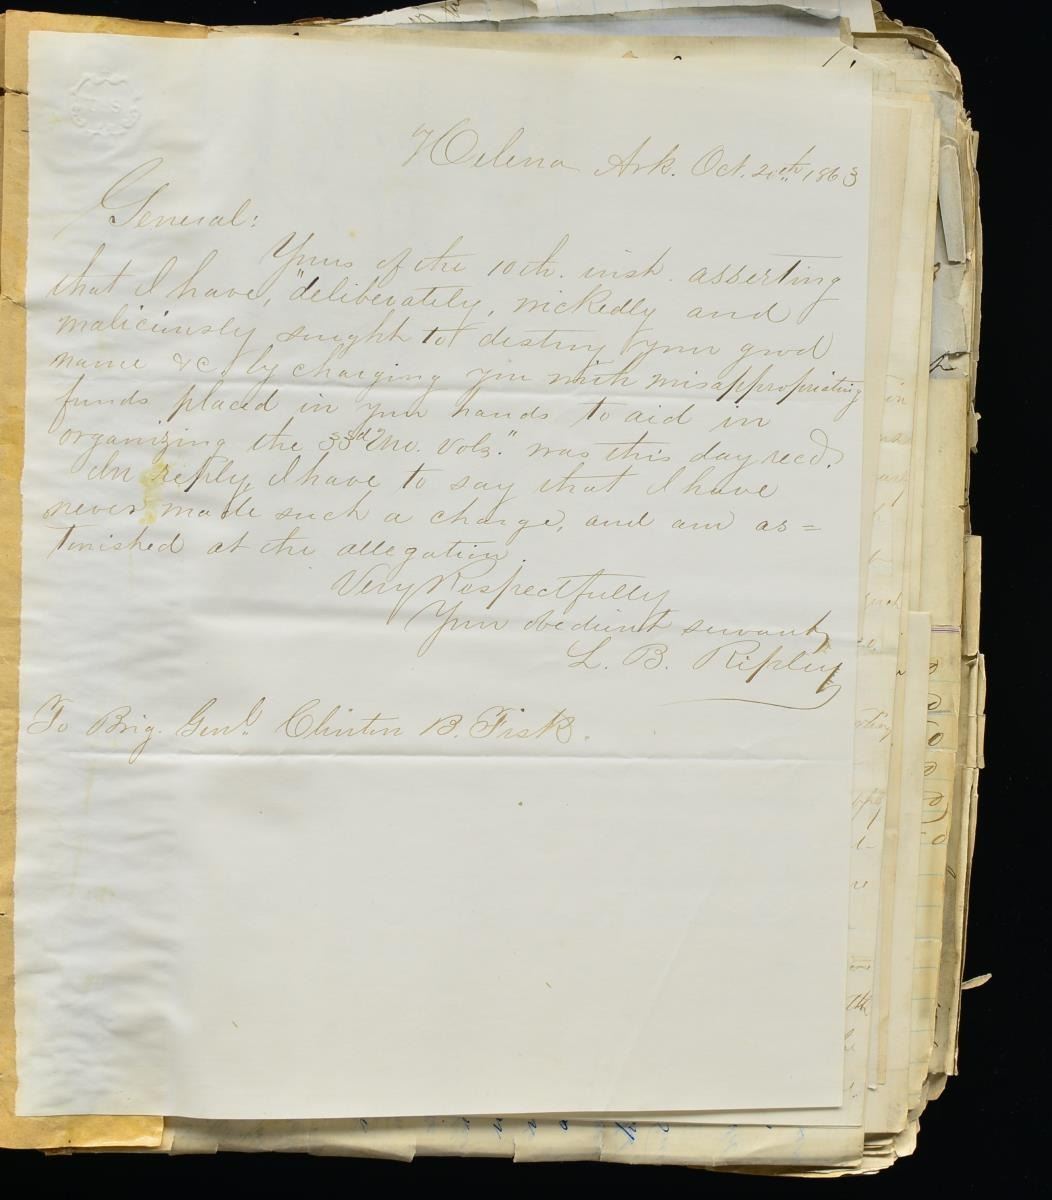 Helena Ark. Oct. 20th 1863
General:
Yours of the 10th. inst. asserting
that I have, "deliberately, wickedly and
maliciously sought to destroy your good
name &c. by charging you with misappropriating
funds placed in your hands to aid in
organizing the 33d Mo. Vols." was this day recd.
In reply I have to say that I have
never made such a charge, and am as=
tonished at the allegation.
Very Respectfully
Your obedient servant,
L. B. Ripley
To Brig. Genl. Clinton B. Fisk.